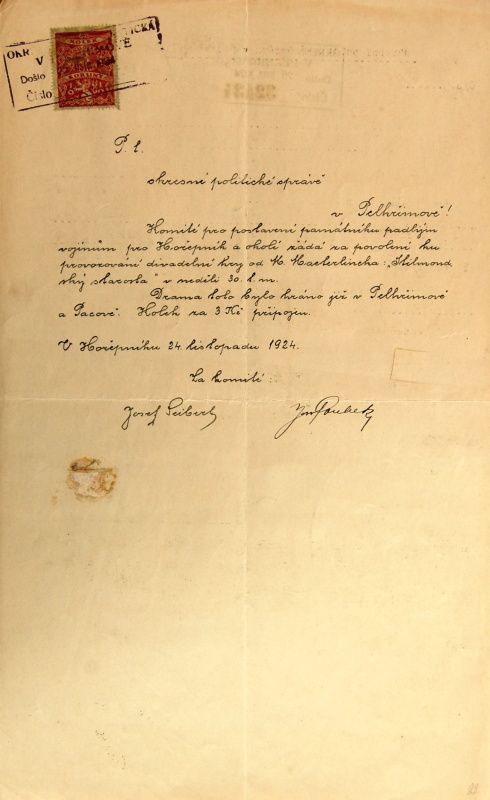 OKR
V
Došlo
Číslo
KOLEK
KORUNY
P. t.
okresní politické správě
v Pelhřimově!
Komité pro postavení památníku padlým
vojínům pro Hořepník a okolí žádá za povolení ku
provozování divadelní hry od M. Maeterlincka: „Stilmond
ský starosta" v neděli 30. t. m.
Drama toto bylo hráno již v Pelhřimově
a Pacově. Kolek za 3 Kč připojen.
V Hořepníku 24. listopadu 1924.
Za komité:
Josef Seibert